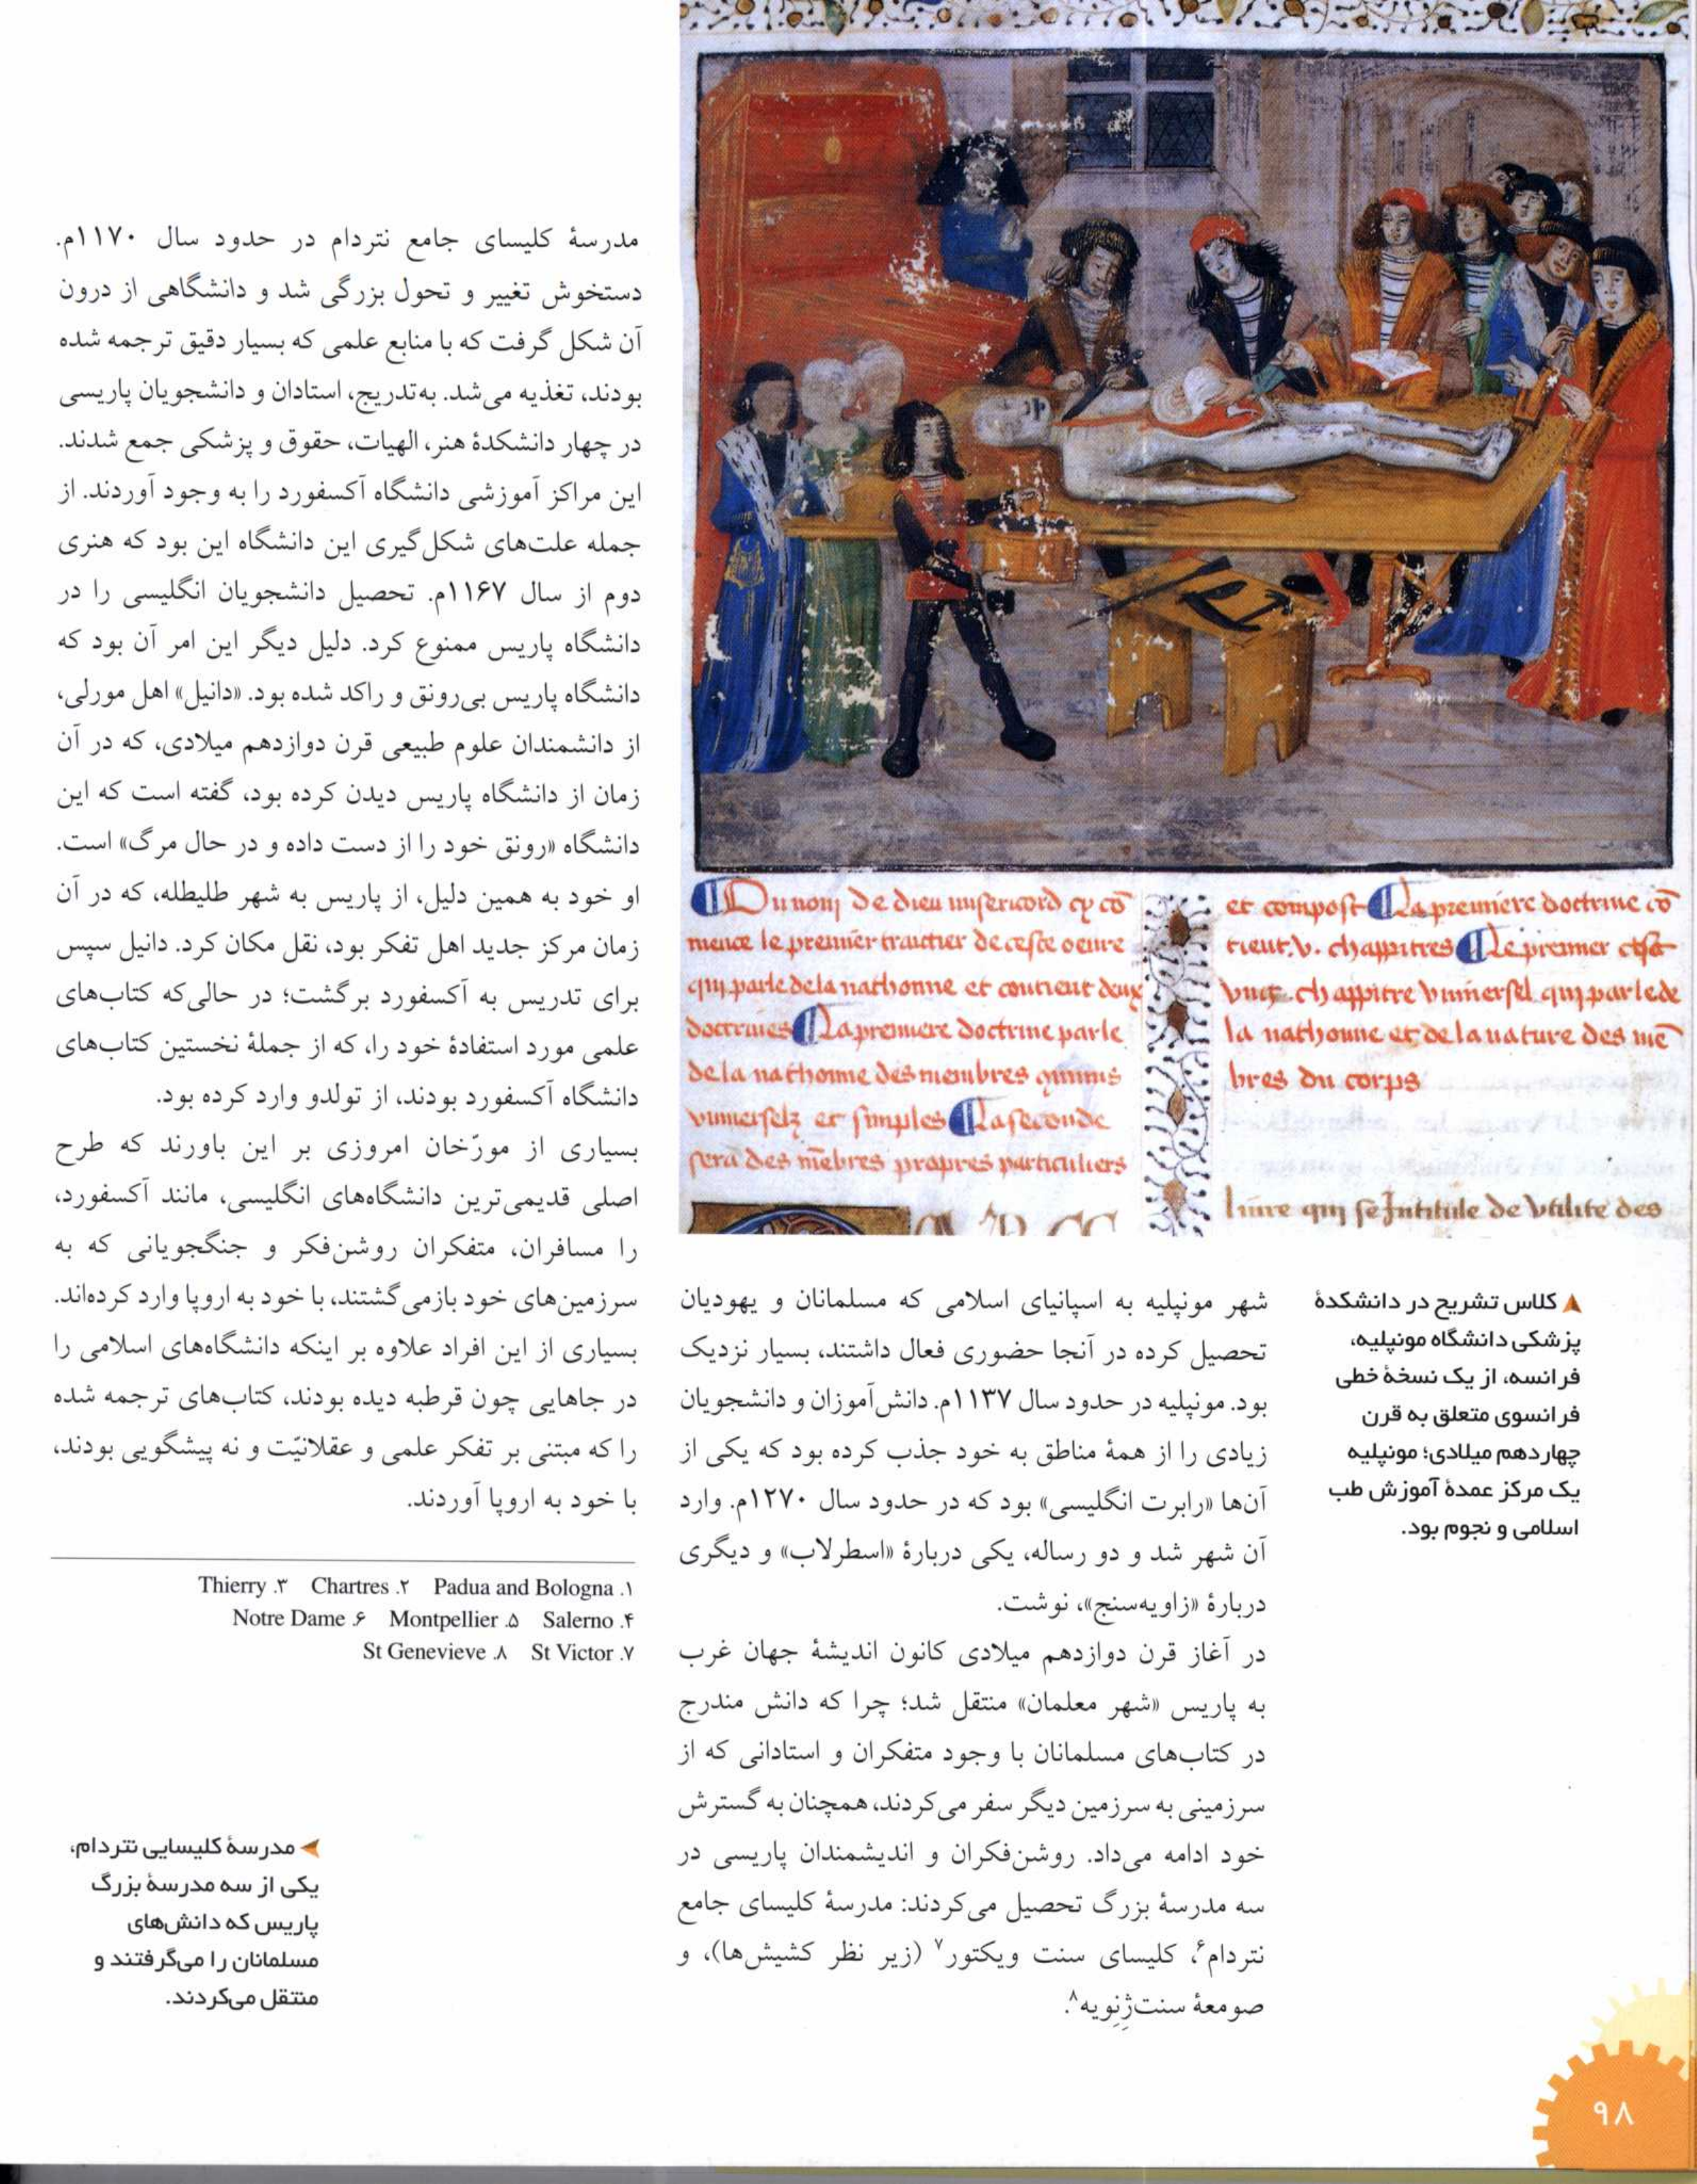 Du nom de dieu misericord cy cō
mence le premier traictier de ceste oeuure
qui parle de la nathomie et contient deux
doctrines La premiere doctrine parle
de la nathomie des membres
vniuerselz et simples La seconde
sera des mēbres propres particuliers
et compost La premiere doctrine cō
tient .v. chappitres Le premier est
vng chappitre vniuersel qui parle de
la nathomie et de la nature des mē
bres du corps
liure qui se Intitule de vtilite des
▲ کلاس تشریح در دانشکدهٔ
پزشکی دانشگاه مونپلیه،
فرانسه، از یک نسخهٔ خطی
فرانسوی متعلق به قرن
چهاردهم میلادی؛ مونپلیه
یک مرکز عمدهٔ آموزش طب
اسلامی و نجوم بود.
شهر مونپلیه به اسپانیای اسلامی که مسلمانان و یهودیان
تحصیل کرده در آنجا حضوری فعال داشتند، بسیار نزدیک
بود. مونپلیه در حدود سال ۱۱۳۷م. دانش‌آموزان و دانشجویان
زیادی را از همهٔ مناطق به خود جذب کرده بود که یکی از
آن‌ها «رابرت انگلیسی» بود که در حدود سال ۱۲۷۰م. وارد
آن شهر شد و دو رساله، یکی دربارهٔ «اسطرلاب» و دیگری
دربارهٔ «زاویه‌سنج»، نوشت.
در آغاز قرن دوازدهم میلادی کانون اندیشهٔ جهان غرب
به پاریس «شهر معلمان» منتقل شد؛ چرا که دانش مندرج
در کتاب‌های مسلمانان با وجود متفکران و استادانی که از
سرزمینی به سرزمین دیگر سفر می‌کردند، همچنان به گسترش
خود ادامه می‌داد. روشن‌فکران و اندیشمندان پاریسی در
سه مدرسهٔ بزرگ تحصیل می‌کردند: مدرسهٔ کلیسای جامع
نتردام۶، کلیسای سنت ویکتور۷ (زیر نظر کشیش‌ها)، و
صومعهٔ سنت‌ژِنِویه۸.
مدرسهٔ کلیسای جامع نتردام در حدود سال ۱۱۷۰م.
دستخوش تغییر و تحول بزرگی شد و دانشگاهی از درون
آن شکل گرفت که با منابع علمی که بسیار دقیق ترجمه شده
بودند، تغذیه می‌شد. به‌تدریج، استادان و دانشجویان پاریسی
در چهار دانشکدهٔ هنر، الهیات، حقوق و پزشکی جمع شدند.
این مراکز آموزشی دانشگاه آکسفورد را به وجود آوردند. از
جمله علت‌های شکل‌گیری این دانشگاه این بود که هنری
دوم از سال ۱۱۶۷م. تحصیل دانشجویان انگلیسی را در
دانشگاه پاریس ممنوع کرد. دلیل دیگر این امر آن بود که
دانشگاه پاریس بی‌رونق و راکد شده بود. «دانیل» اهل مورلی،
از دانشمندان علوم طبیعی قرن دوازدهم میلادی، که در آن
زمان از دانشگاه پاریس دیدن کرده بود، گفته است که این
دانشگاه «رونق خود را از دست داده و در حال مرگ» است.
او خود به همین دلیل، از پاریس به شهر طلیطله، که در آن
زمان مرکز جدید اهل تفکر بود، نقل مکان کرد. دانیل سپس
برای تدریس به آکسفورد برگشت؛ در حالی‌که کتاب‌های
علمی مورد استفادهٔ خود را، که از جملهٔ نخستین کتاب‌های
دانشگاه آکسفورد بودند، از تولدو وارد کرده بود.
بسیاری از مورّخان امروزی بر این باورند که طرح
اصلی قدیمی‌ترین دانشگاه‌های انگلیسی، مانند آکسفورد،
را مسافران، متفکران روشن‌فکر و جنگجویانی که به
سرزمین‌های خود بازمی‌گشتند، با خود به اروپا وارد کرده‌اند.
بسیاری از این افراد علاوه بر اینکه دانشگاه‌های اسلامی را
در جاهایی چون قرطبه دیده بودند، کتاب‌های ترجمه شده
را که مبتنی بر تفکر علمی و عقلانیّت و نه پیشگویی بودند،
با خود به اروپا آوردند.
۱. Padua and Bologna ۲. Chartres ۳. Thierry
۴. Salerno ۵. Montpellier ۶. Notre Dame
۷. St Victor ۸. St Genevieve
➤ مدرسهٔ کلیسایی نتردام،
یکی از سه مدرسهٔ بزرگ
پاریس که دانش‌های
مسلمانان را می‌گرفتند و
منتقل می‌کردند.
۹۸